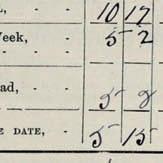 , - - 10 17
Week, - 5 2
- - -
ad, - 5 8
E DATE, - 5 15